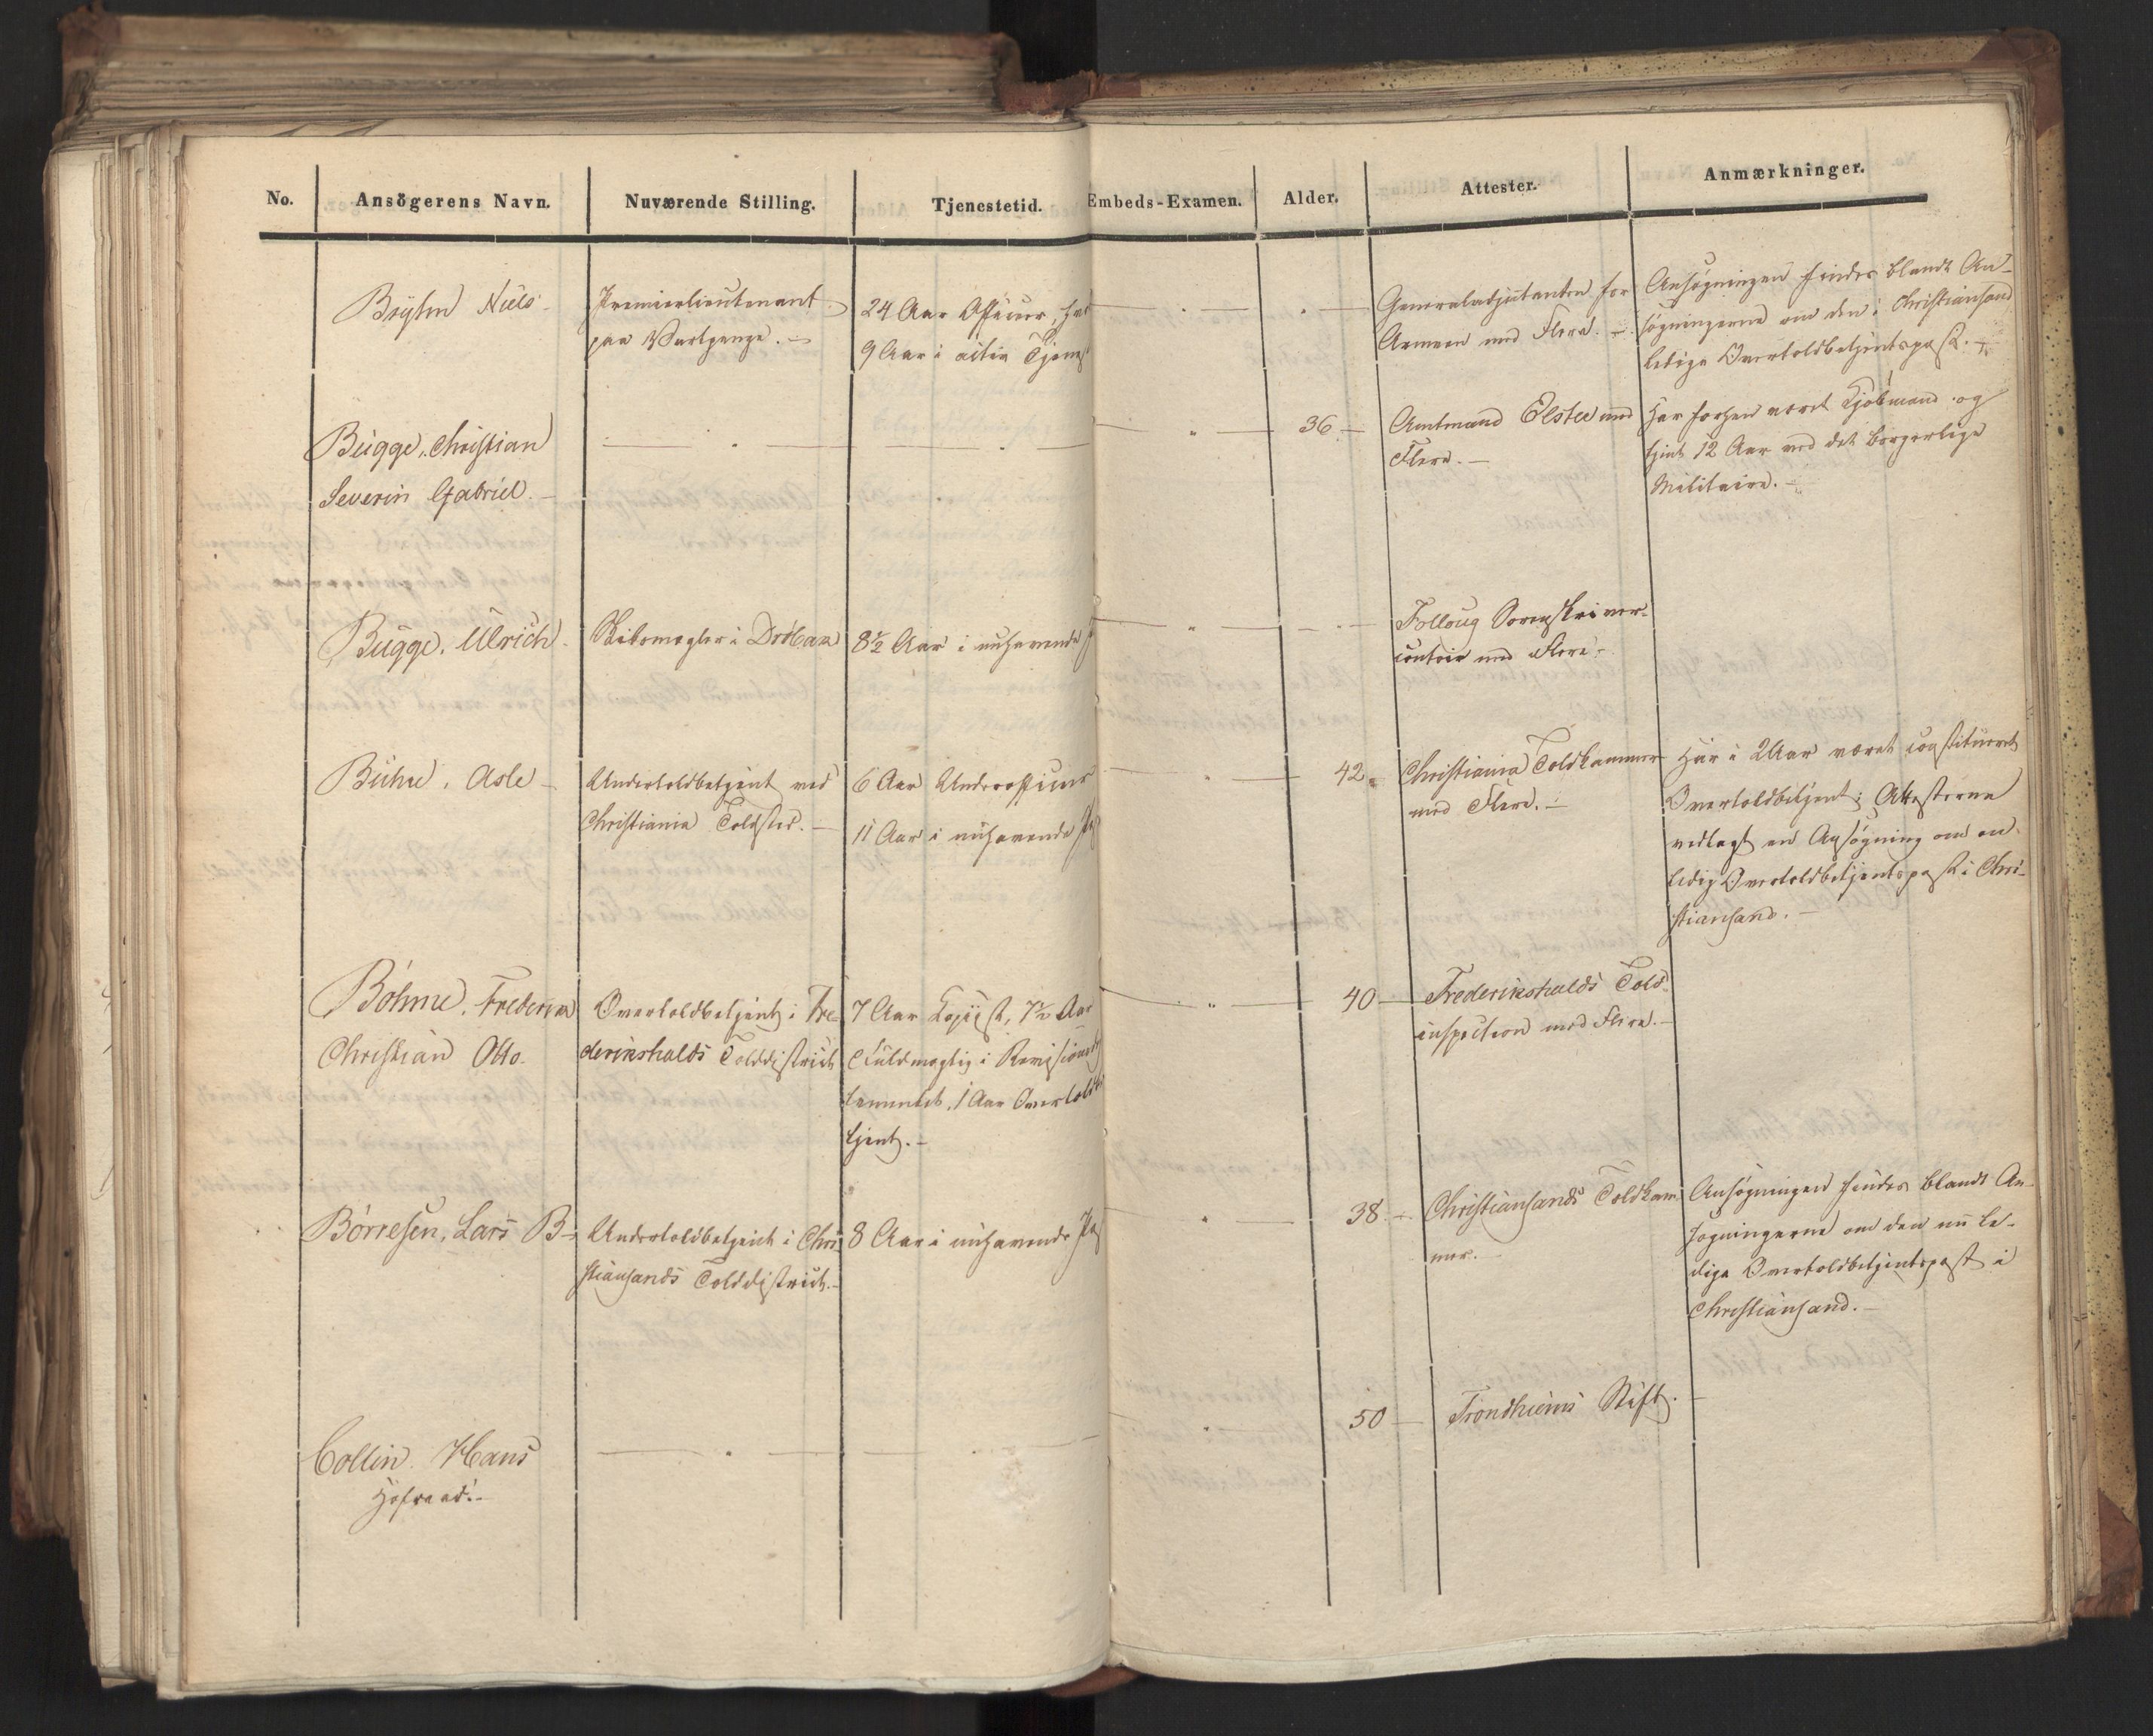 No. Ansögerens Navn. Nuværende Stilling. Tjenestetid. Embeds-Examen. Alder. Attester. Anmærkninger.
Bryhn Niels
Premierlieutenant
paa Vartpenge.
24 Aar Officeer, har
9 Aar i activ Tjenes
Generaladjutanten for
Armeen med Flere.
Ansøgningen findes blandt An-
søgningerne om den i Christiansand
ledige Overtoldbetjentspost.
Bugge, Christian
Severin Gabriel.
36
Amtmand Elster med
Flere.
Har forhen været Kjøbmand og
tjent 12 Aar ved det borgerlige
Militaire.
Bugge, Ulrich
Skibsmægler i Drøbak
8½ Aar i nuhavende
Folloug Sorenskriver-
contoir med Flere.
Buhn, Asle
Undertoldbetjent ved
Christiania Toldsted.
6 Aar Underofficeer
11 Aar i nuhavende
42.
Christiania Toldkammer
med Flere.
Har i 2 Aar været constitueret
Overtoldbetjent; Attesterne
vedlagt en Ansøgning om en
ledig Overtoldbetjentspost i Chri-
stiansand.
Böhme, Frederik
Christian Otto.
Overtoldbetjent i Fre-
derikshalds Tolddistrict
7 Aar Copiist, 7½ Aar
Fuldmægtig i Revisions
1 Aar Overtoldbe
tjent.
40
Frederikshalds Told-
inspection med Flere.
Börresen, Lars B
Undertoldbetjent i Chri-
stiansands Tolddistrict.
8 Aar i nuhavende
38
Christiansands Toldkam-
mer.
Ansøgningen findes blandt An-
søgningerne om den nu le-
dige Overtoldbetjentspost i
Christiansand.
Collin. Hans
Hofraad.
50
Trondhiems Stift.